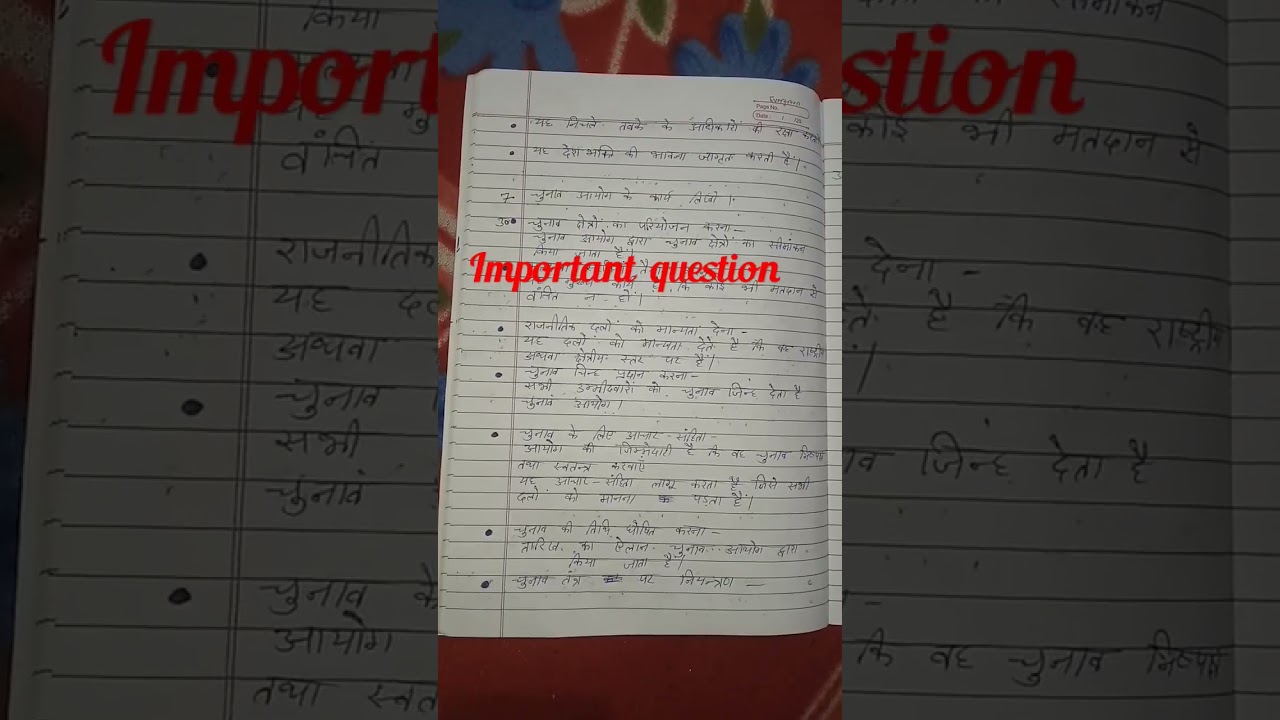 Important question
Evergreen
Page No.
Date : / /20
• यह निचले तबके के अधिकारों की रक्षा करती
• यह देशभक्ति की भावना जागृत करती है।
7- चुनाव आयोग के कार्य लिखो।
उ०• चुनाव क्षेत्रों का परियोजन करना-
चुनाव आयोग द्वारा चुनाव क्षेत्रों का सीमांकन
किया जाता है।
Important question
कार्य है कि कोई भी मतदान से
वंचित न हो।
• राजनीतिक दलों को मान्यता देना -
यह दलों को मान्यता देते है कि वह राष्ट्रीय
अथवा क्षेत्रीय स्तर पर है।
• चुनाव चिन्ह प्रदान करना-
सभी उम्मीदवारों को चुनाव जिन्ह देता है
चुनाव आयोग।
• चुनाव के लिए आचार-संहिता-
आयोग की जिम्मेदारी है कि वह चुनाव निष्पक्ष
तथा स्वतन्त्र करवाएं
यह आचार-संहिता लागू करता है जिसे सभी
दलों को मानना पड़ता है।
• चुनाव की तिथि घोषित करना-
तारिख का ऐलान चुनाव आयोग द्वारा
किया जाता है।
• चुनाव तंत्र पर नियन्त्रण -